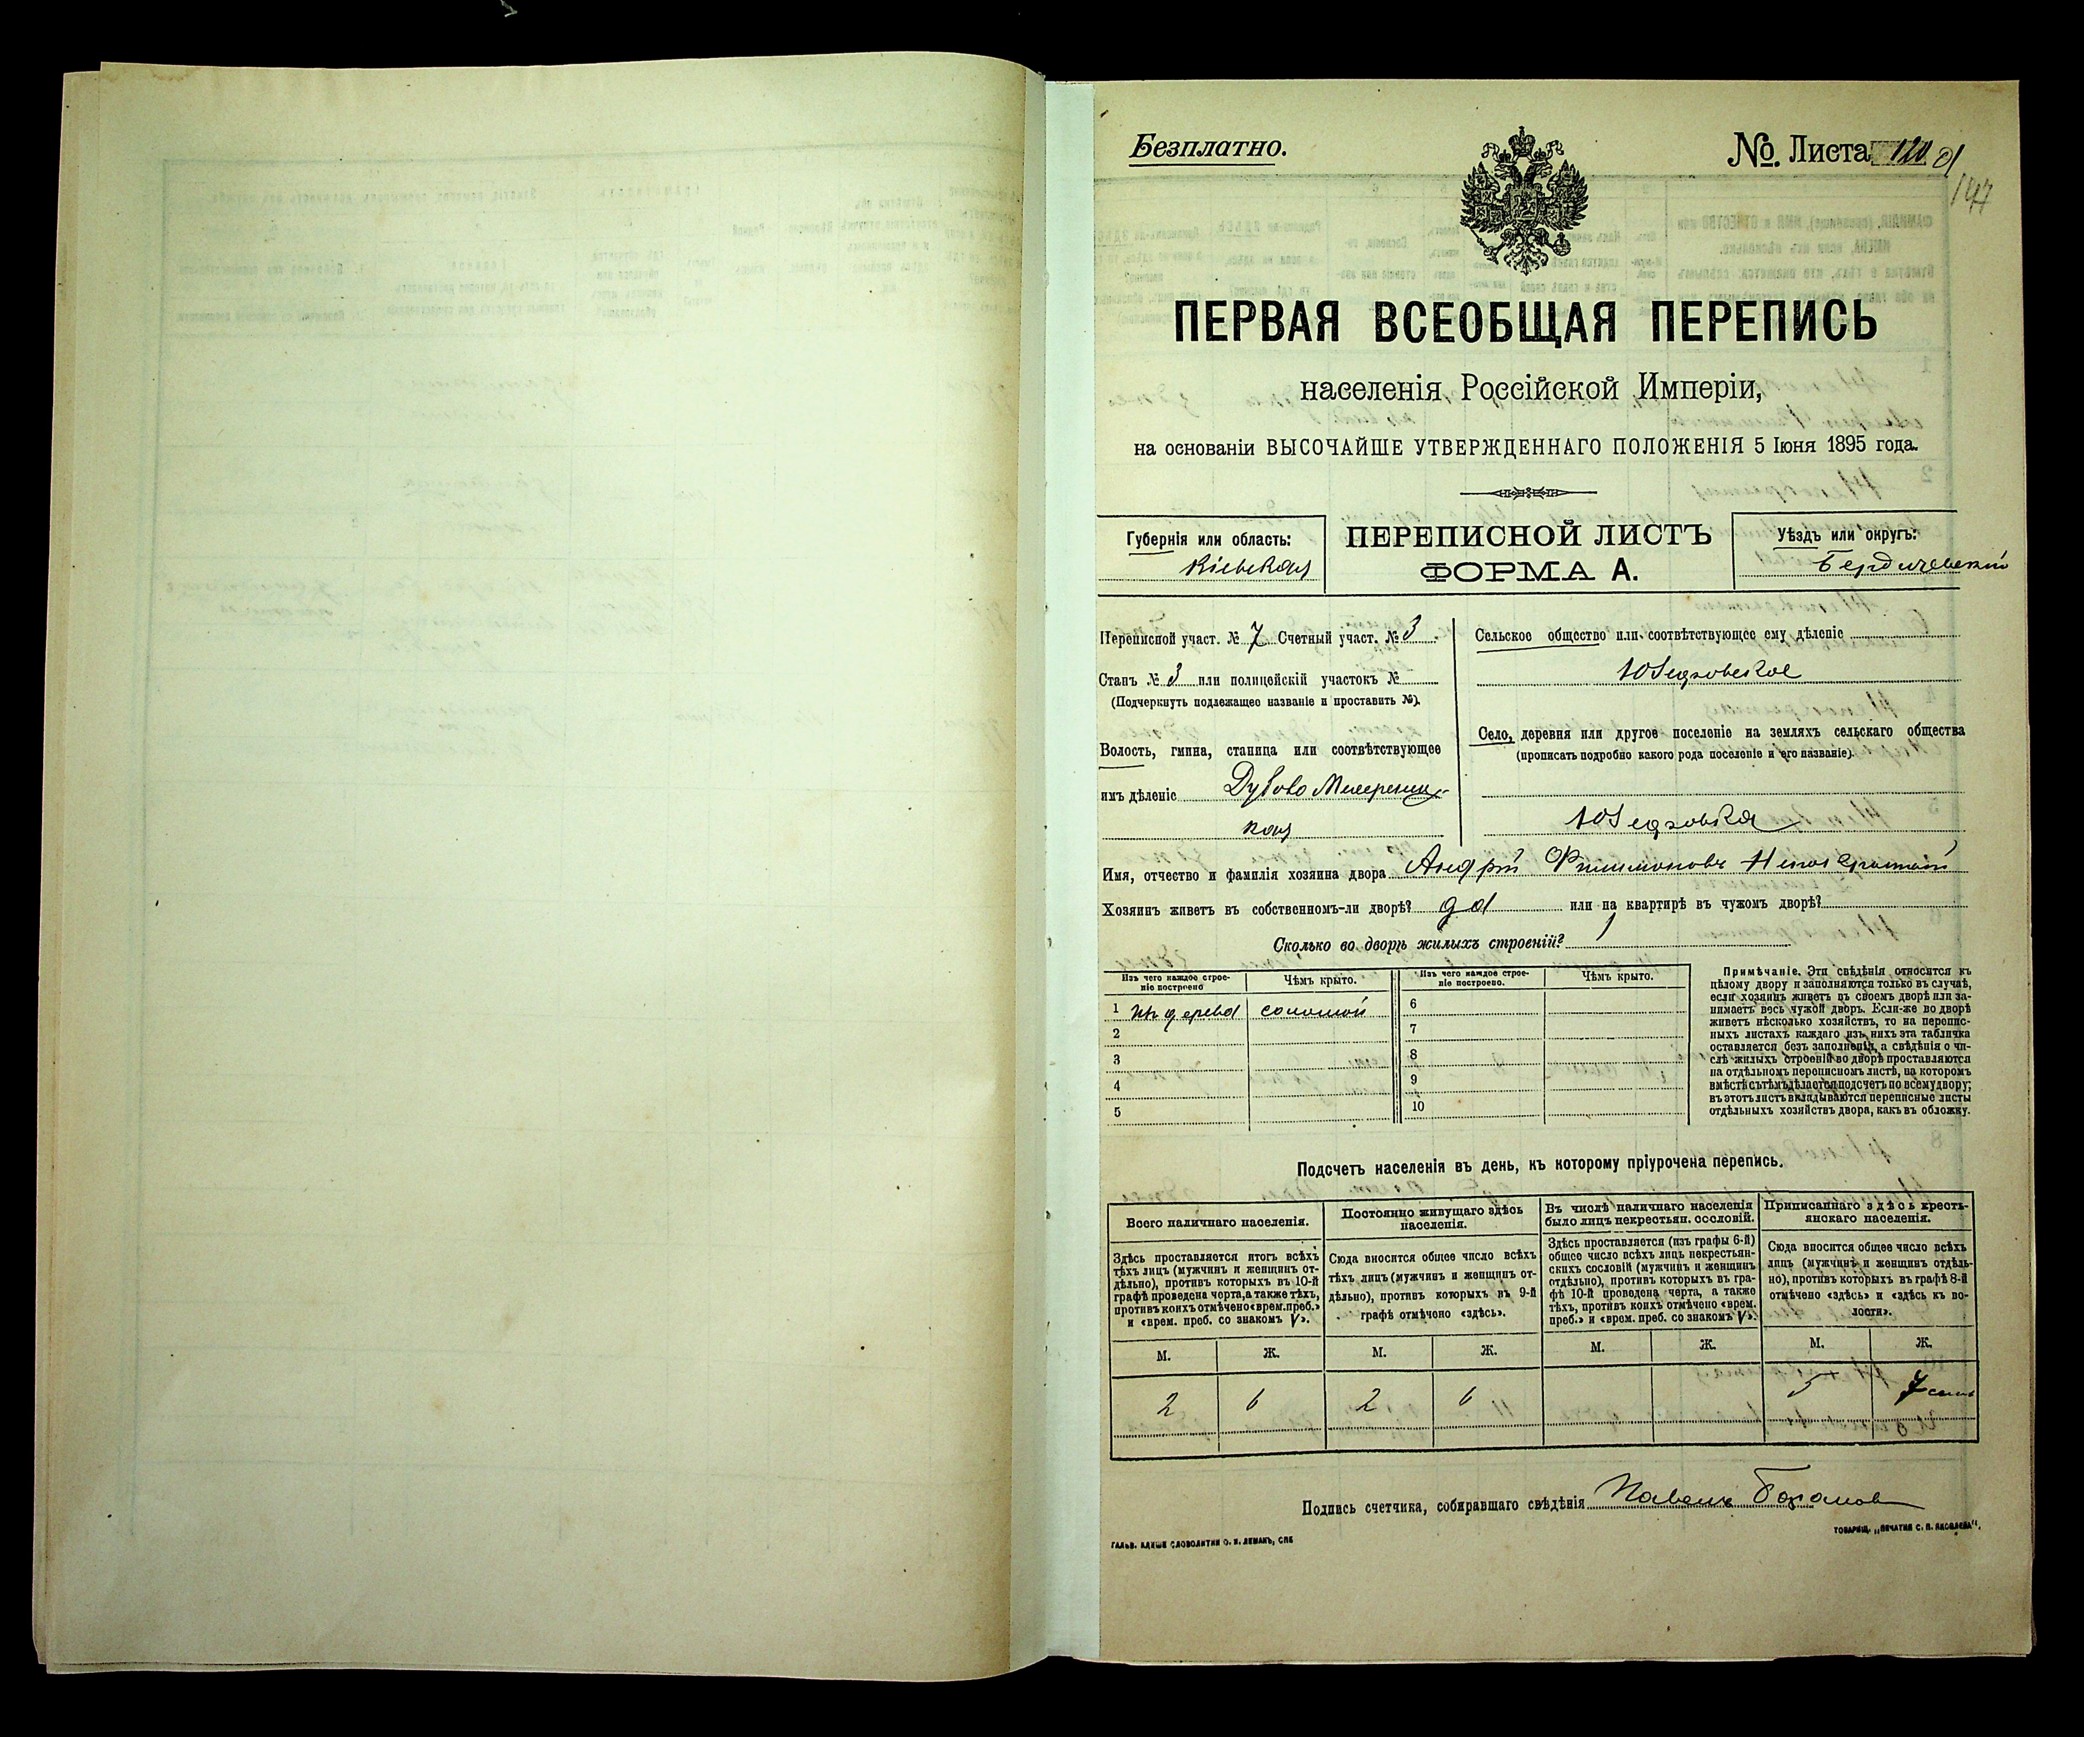 Безплатно.
№. Листа 120
147
ПЕРВАЯ ВСЕОБЩАЯ ПЕРЕПИСЬ
населенія Россійской Имперіи,
на основаніи ВЫСОЧАЙШЕ УТВЕРЖДЕННАГО ПОЛОЖЕНІЯ 5 Іюня 1895 года.
Губернія или область:
Кіевская
ПЕРЕПИСНОЙ ЛИСТЪ
ФОРМА А.
Уѣздъ или округъ:
Бердичевскій
Переписной участ. № 7 Счетный участ. № 3
Станъ № 3 или полицейскій участокъ №
(Подчеркнуть подлежащее названіе и проставить №).
Волость, гмина, станица или соотвѣтствующее
имъ дѣленіе Дубово Махарин-
кая
Сельское общество или соотвѣтствующее ему дѣленіе
Село, деревня или другое поселеніе на земляхъ сельскаго общества
(прописать подробно какого рода поселеніе и его названіе).
Имя, отчество и фамилія хозяина двора Андрій Филимоновъ Непокритый
Хозяинъ живетъ въ собственномъ-ли дворѣ? да или на квартирѣ въ чужомъ дворѣ?
Сколько во дворѣ жилыхъ строеній? 1
Изъ чего каждое строе-
ніе построено
Чѣмъ крыто.
Изъ чего каждое строе-
ніе построено.
Чѣмъ крыто.
1 изъ дерева соломой
2
3
4
5
6
7
8
9
10
Примѣчаніе. Эти свѣдѣнія относятся къ
цѣлому двору и заполняются только въ случаѣ,
если хозяинъ живетъ въ своемъ дворѣ или за-
нимаетъ весь чужой дворъ. Если-же во дворѣ
живетъ нѣсколько хозяйствъ, то на перепис-
ныхъ листахъ каждаго изъ нихъ эта табличка
оставляется безъ заполненія, а свѣдѣнія о чи-
слѣ жилыхъ строеній во дворѣ проставляются
на отдѣльномъ переписномъ листѣ, на которомъ
вмѣстѣ съ тѣмъ дѣлается подсчетъ по всему двору;
въ этотъ листъ вкладываются переписные листы
отдѣльныхъ хозяйствъ двора, какъ въ обложку.
Подсчетъ населенія въ день, къ которому пріурочена перепись.
Всего наличнаго населенія.
Здѣсь проставляется итогъ всѣхъ
тѣхъ лицъ (мужчинъ и женщинъ от-
дѣльно), противъ которыхъ въ 10-й
графѣ проведена черта, а также тѣхъ,
противъ коихъ отмѣчено «врем. преб.»
и «врем. преб. со знакомъ V».
Постоянно живущаго здѣсь
населенія.
Сюда вносится общее число всѣхъ
тѣхъ лицъ (мужчинъ и женщинъ от-
дѣльно), противъ которыхъ въ 9-й
графѣ отмѣчено «здѣсь».
Въ числѣ наличнаго населенія
было лицъ некрестьян. сословій.
Здѣсь проставляется (изъ графы 6-й)
общее число всѣхъ лицъ некрестьян-
скихъ сословій (мужчинъ и женщинъ
отдѣльно), противъ которыхъ въ гра-
фѣ 10-й проведена черта, а также
тѣхъ, противъ коихъ отмѣчено «врем.
преб.» и «врем. преб. со знакомъ V».
Приписаннаго здѣсь кресть-
янскаго населенія.
Сюда вносится общее число всѣхъ
лицъ (мужчинъ и женщинъ отдѣль-
но), противъ которыхъ въ графѣ 8-й
отмѣчено «здѣсь» и «здѣсь къ во-
лости».
М. Ж. М. Ж. М. Ж. М. Ж.
2 6 2 6 5 7
Подпись счетчика, собиравшаго свѣдѣнія Павелъ
ГАЛЬВ. КЛИШЕ СЛОВОЛИТНИ О. И. ЛЕМАНЪ, СПБ
ТОВАРИЩ. „ПЕЧАТНЯ С. П. ЯКОВЛЕВА".